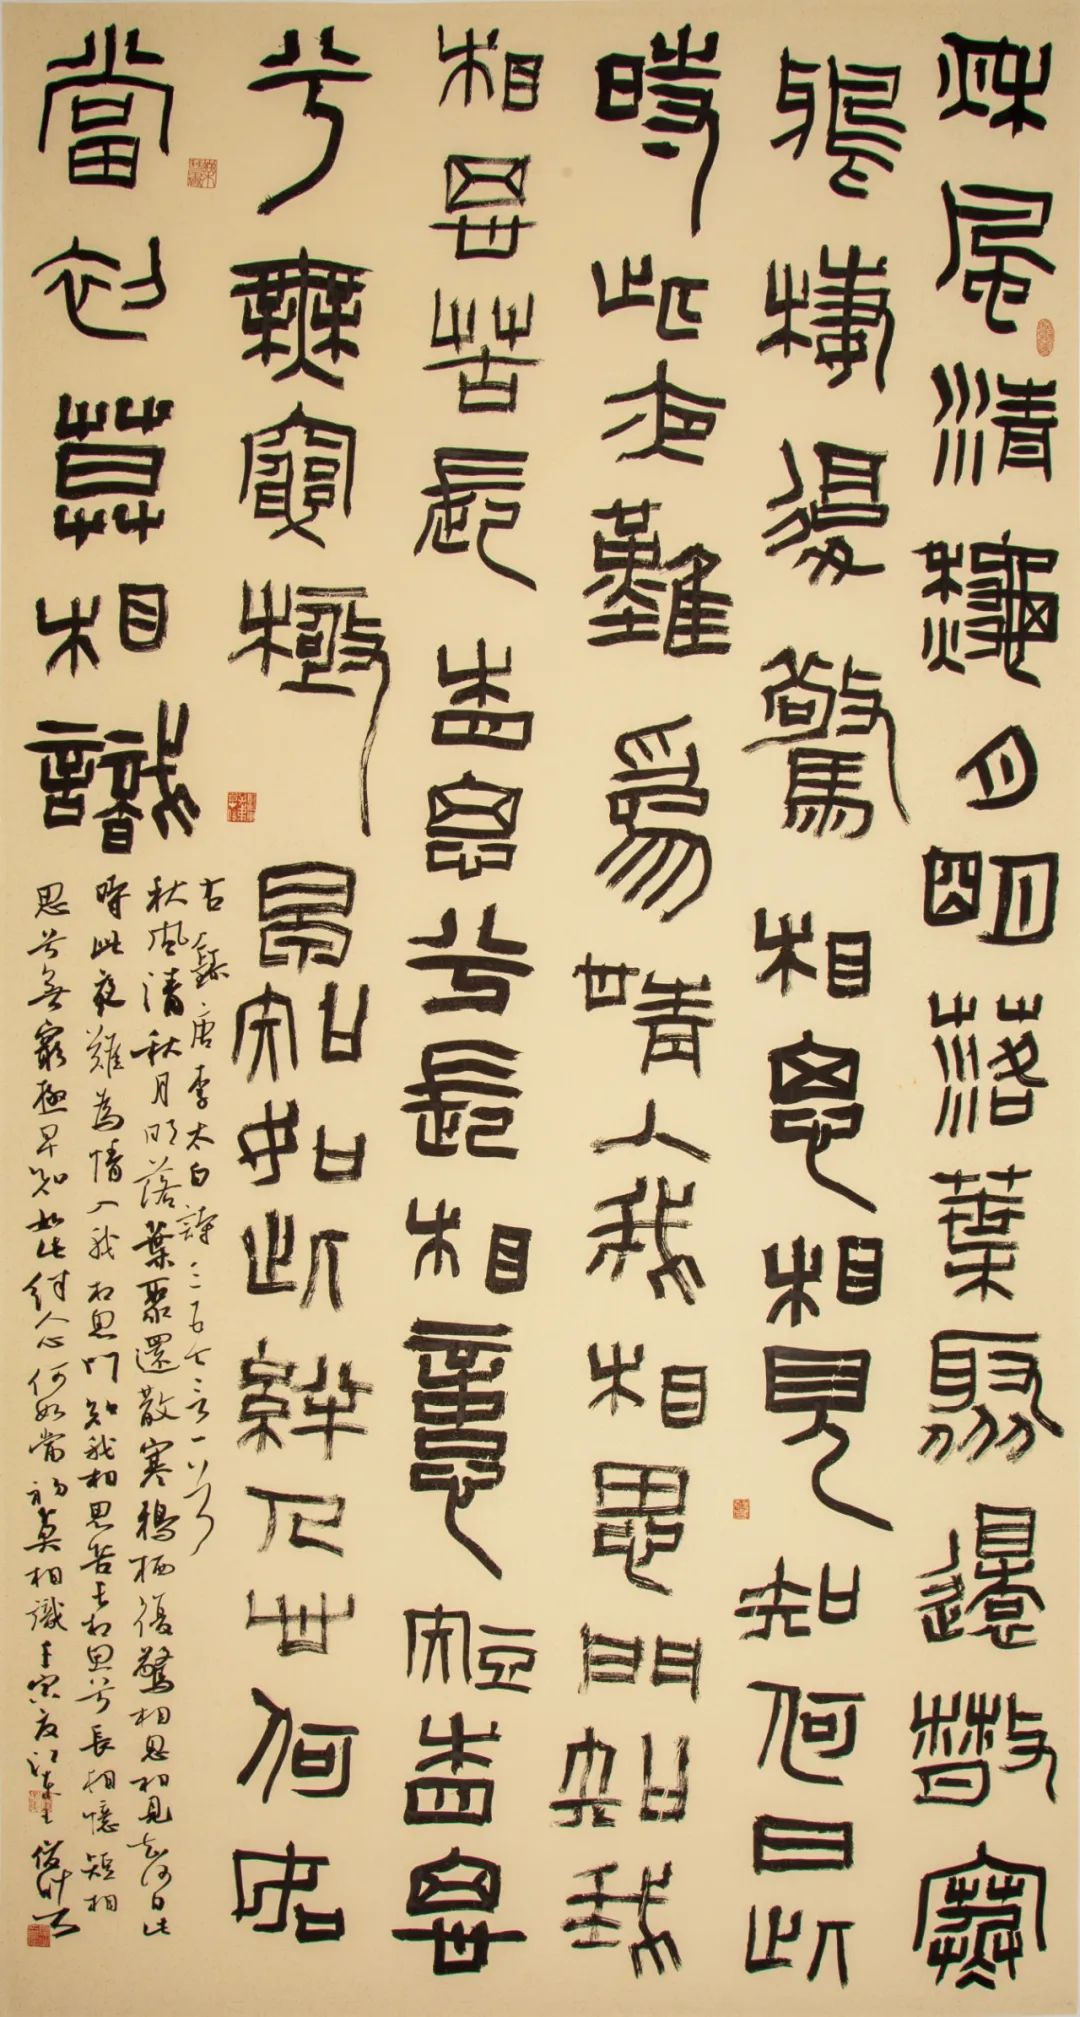 秋風清秋月明落葉聚還散寒
鴉棲復驚相思相見知何日此
時此夜難為情入我相思門知我
相思苦長相思兮長相憶短相思
兮無窮極早知如此絆人心何如
當初莫相識
古鉨唐李太白詩三五七言一首
秋風清秋月明落葉聚還散寒鴉栖復驚相思相見知何日此
時此夜難為情入我相思門知我相思苦長相思兮長相憶短相
思兮無窮極早知如此絆人心何如當初莫相識壬寅夏江東王